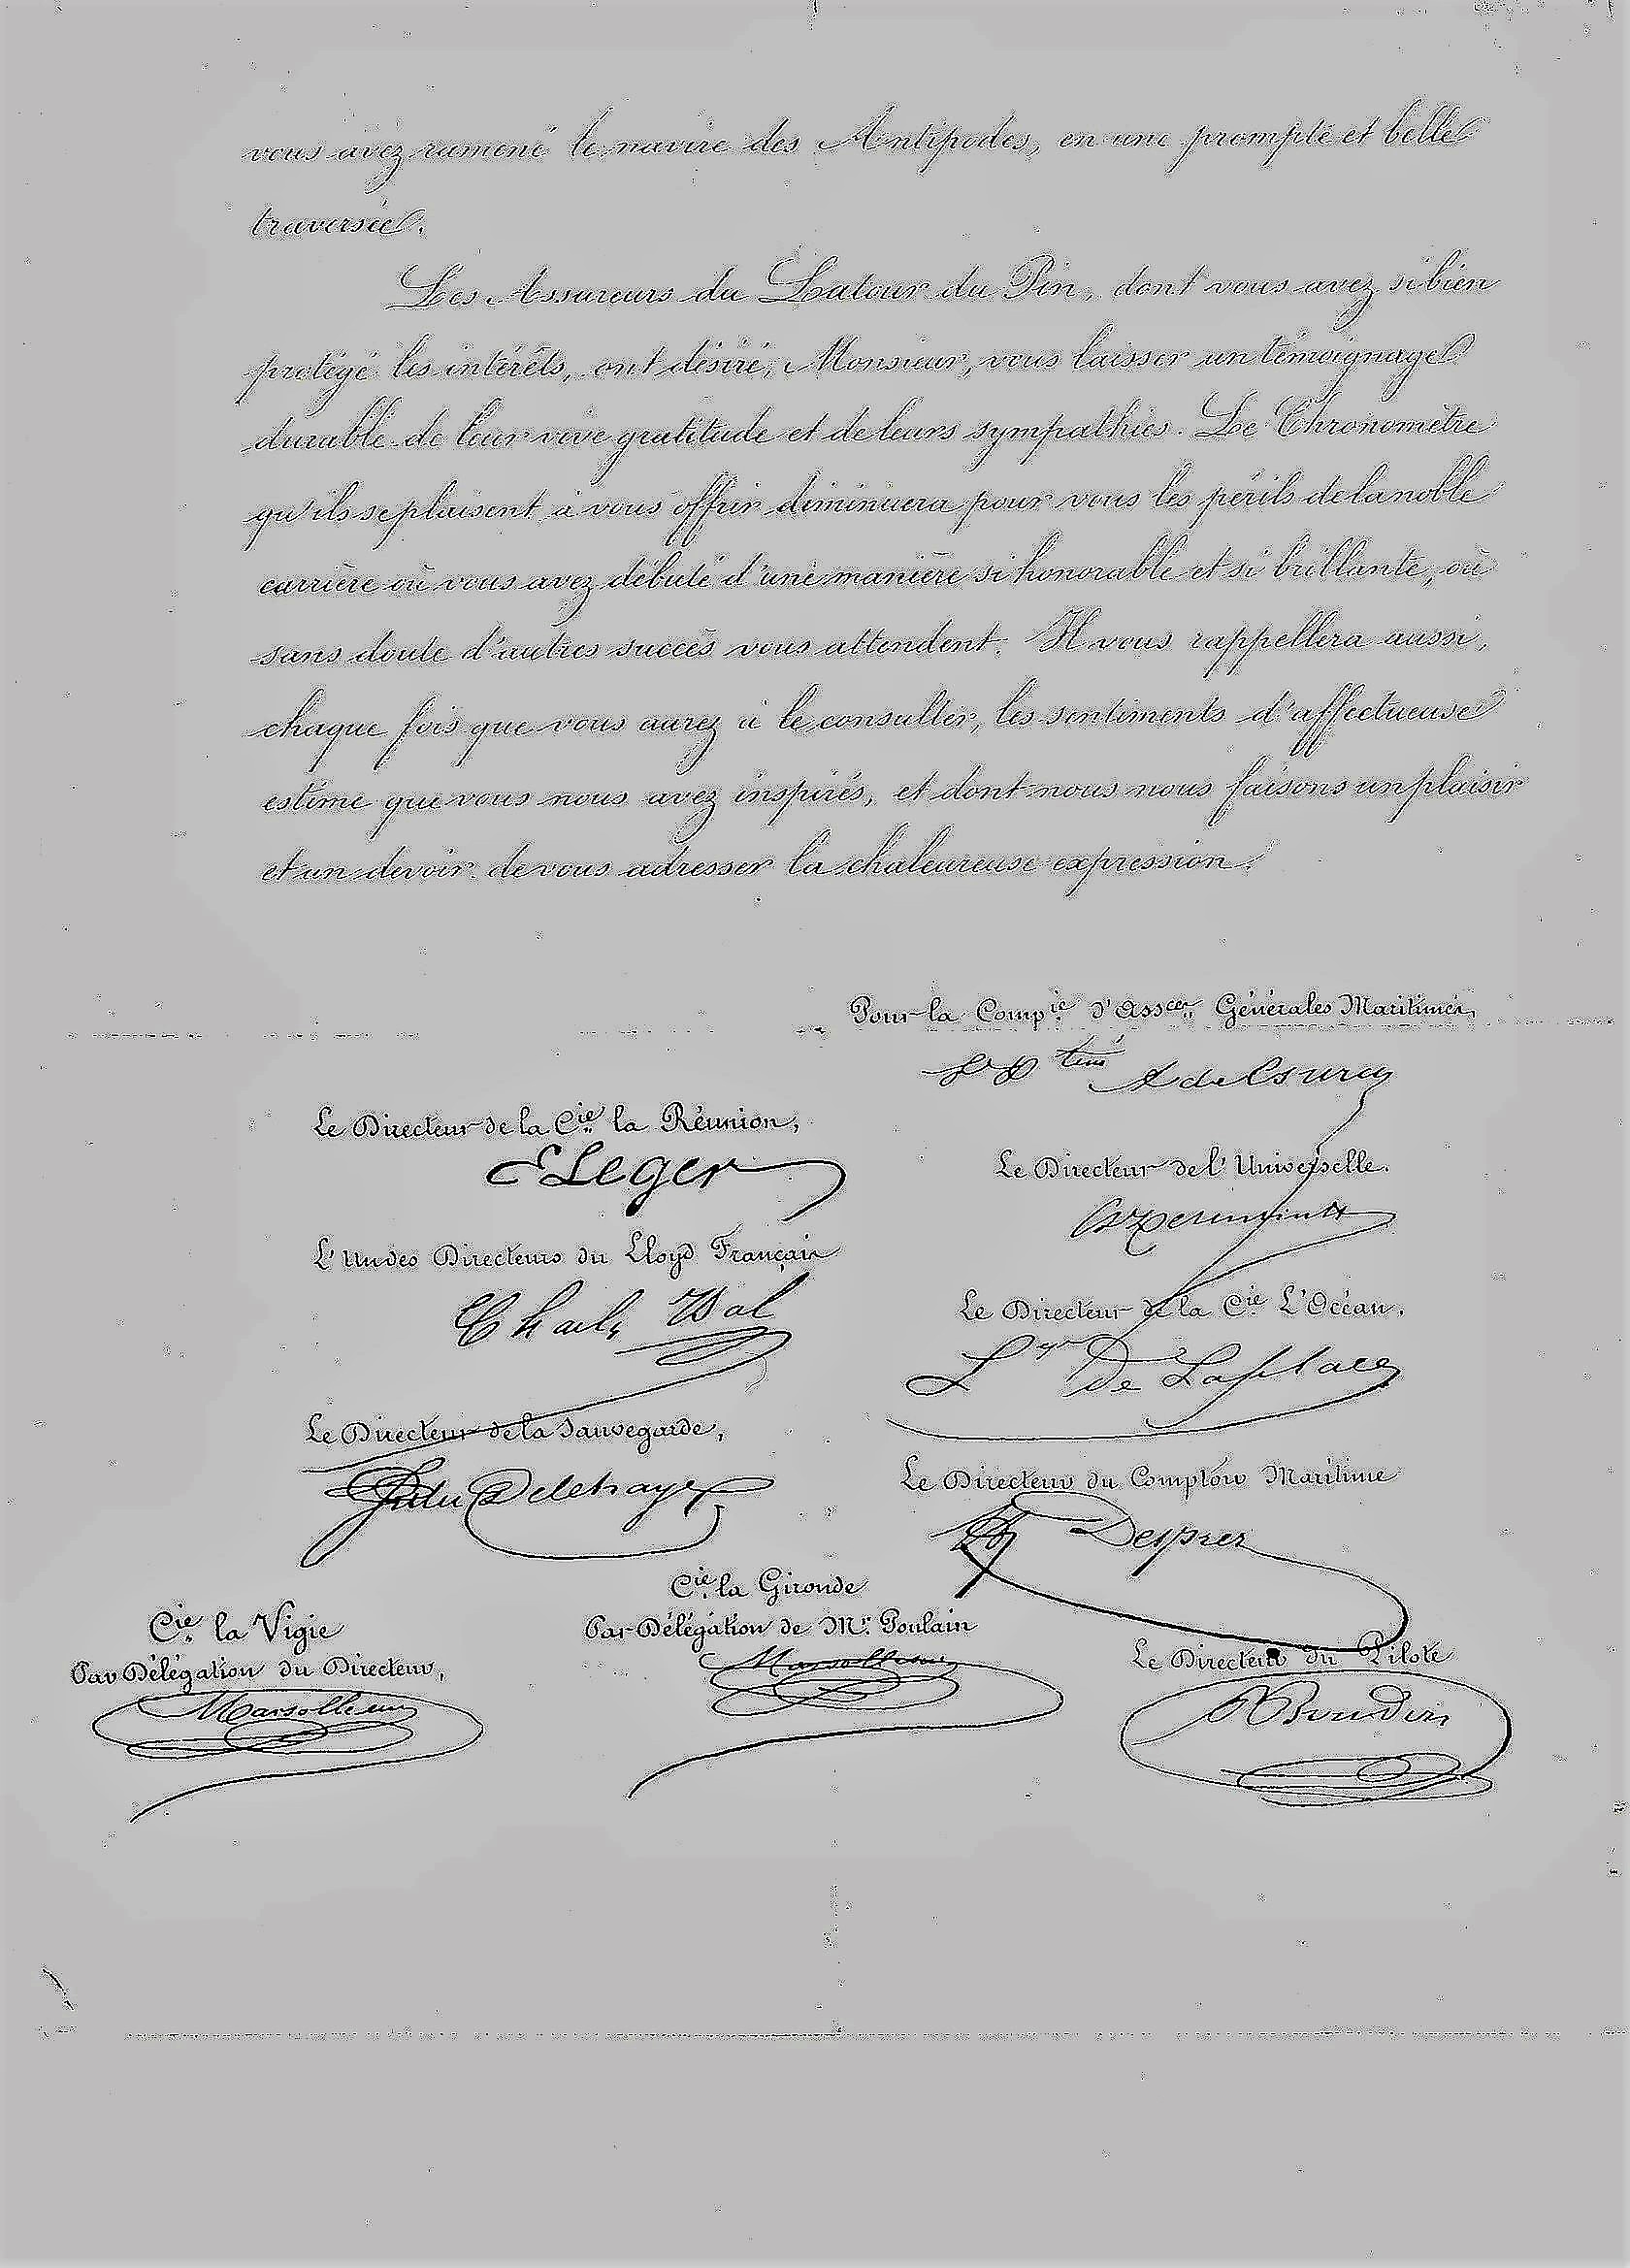 vous avez ramené le navire des Antipodes, en une prompte et belle
traversée.
Les Assureurs du Latour du Pin, dont vous avez si bien
protégé les intérêts, ont désiré, Monsieur, vous laisser un témoignage
durable de leur vive gratitude et de leurs sympathies. Le Chronomètre
qu'ils se plaisent à vous offrir diminuera pour vous les périls de la noble
carrière où vous avez débuté d'une manière si honorable et si brillante, où
sans doute d'autres succès vous attendent. Il vous rappellera aussi,
chaque fois que vous aurez à le consulter, les sentiments d'affectueuse
estime que vous nous avez inspirés, et dont nous nous faisons un plaisir
et un devoir de vous adresser la chaleureuse expression.
Pour la Compie d'Assces Générales Maritimes,
Le Directeur de la Cie la Réunion,
E Leger
Le Directeur de l'Universelle.
L'Un des Directeurs du Lloyd Français
Le Directeur de la Cie L'Océan.
De Laplace
Le Directeur de la Sauvegarde,
Jules Delehaye
Le Directeur du Comptoir Maritime
Desprez
Cie la Gironde
Par Délégation de Mr. Poulain
Cie la Vigie
Par Délégation du Directeur,
Le Directeur du Pilote
Marsolleau